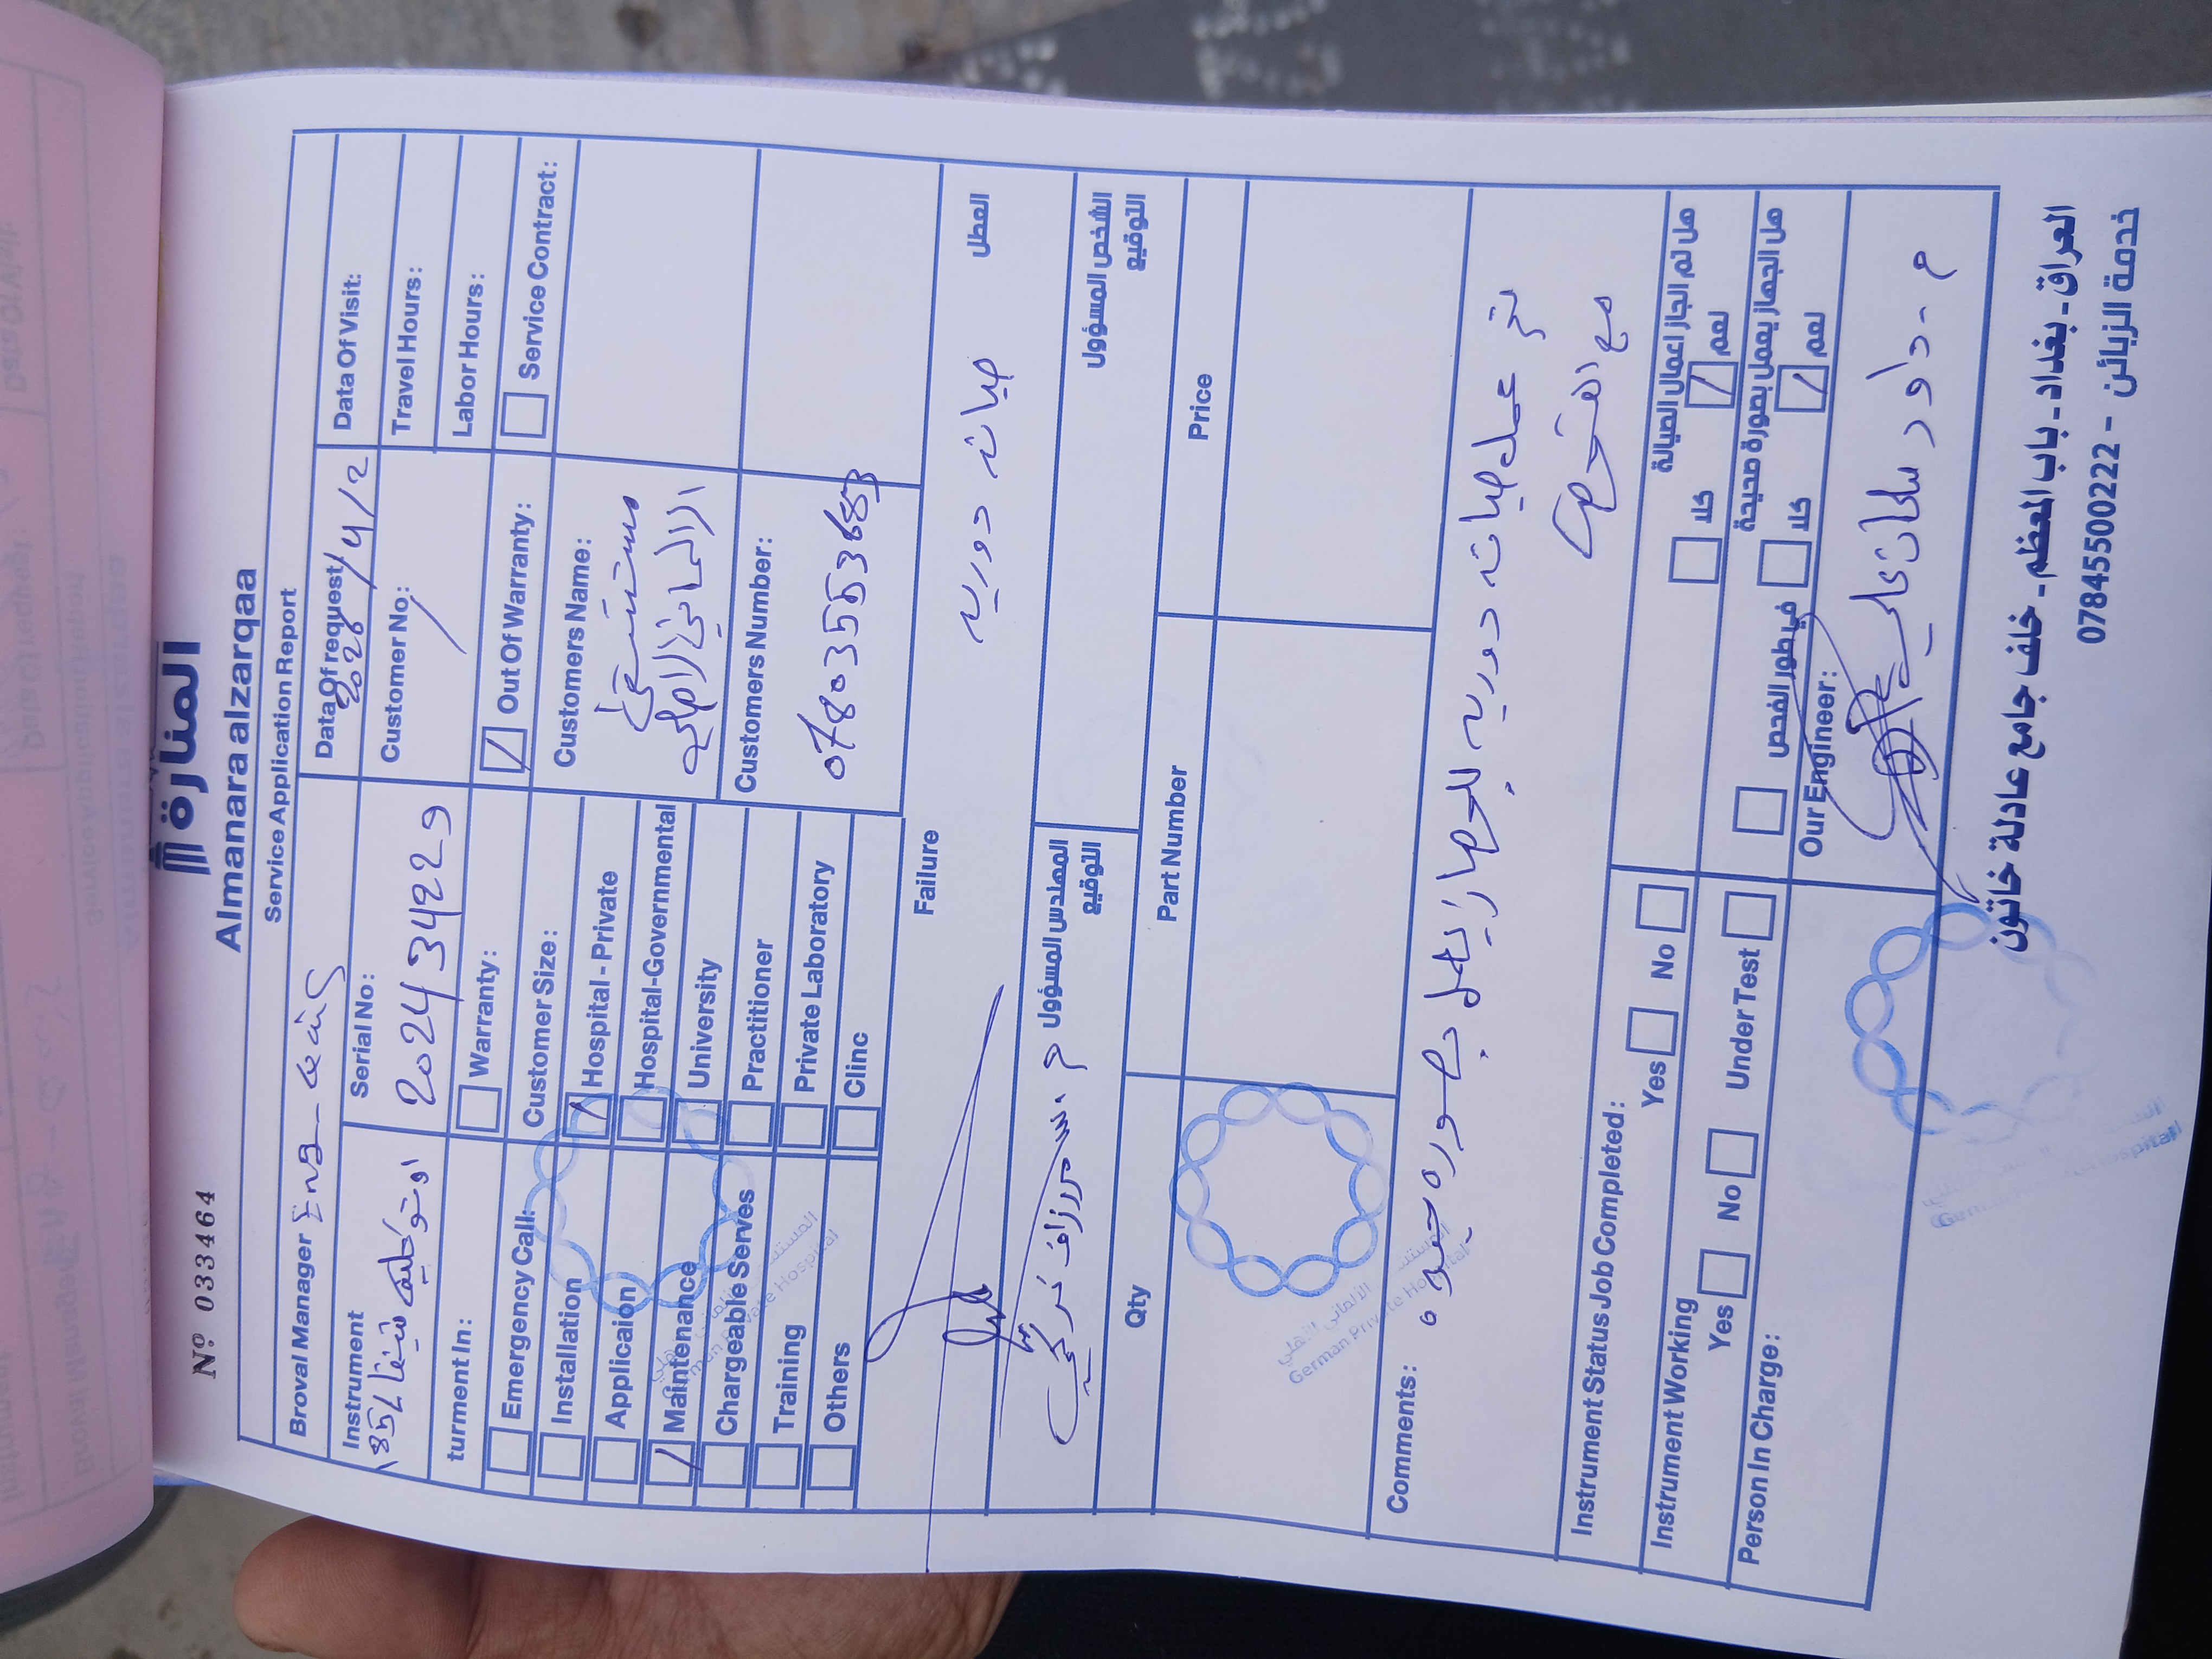 Nº 033464
المنارة
Almanara alzarqaa
Service Application Report
Broval Manager Eng-
Instrument
اوتوكليف شينفا 185L
Serial No:
20243429
Data Of request
2028/4/2
Data Of Visit:
Customer No:
/
Travel Hours:
Labor Hours:
turment In:
Warranty:
Out Of Warranty:
Service Contract:
Emergency Call:
Installation
Applicaion
Maintenance
Chargeable Serves
Training
Others
Customer Size:
Hospital - Private
Hospital-Governmental
University
Practitioner
Private Laboratory
Clinc
Customers Name:
مستشفى
الالماني الاهلي
Customers Number:
07803553683
Failure
العطل
صيانه دوريه
المهندس المسؤول
التوقيع
الشخص المسؤول
التوقيع
Qty
Part Number
Price
المستشفى الألماني الأهلي
German Private Hospital
Comments:
تم عمل صيانه دوريه للجهاز يعمل بصوره جيده
مع الفحص
Instrument Status Job Completed:
Yes
No
هل تم انجاز اعمال الصيانة
كلا
نعم
Instrument Working
Yes
No
Under Test
هل الجهاز يعمل بصورة صحيحة
في طور الفحص
كلا
نعم
Person In Charge:
Our Engineer:
م. داود سلمان علي
العراق - بغداد - باب المعظم - خلف جامع عادلة خاتون
خدمة الزبائن - 07845500222